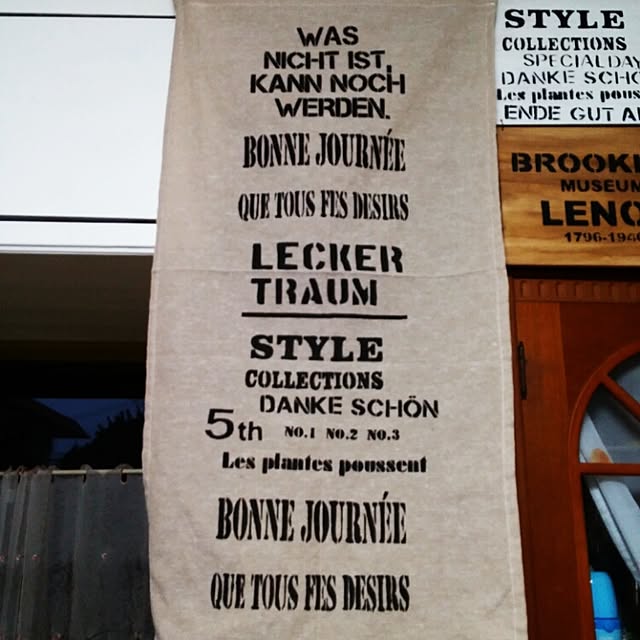 WAS
NICHT IST,
KANN NOCH
WERDEN.
BONNE JOURNÉE
QUE TOUS FES DESIRS
LECKER
TRAUM
STYLE
COLLECTIONS
DANKE SCHÖN
5th NO.1 NO.2 NO.3
Les plantes poussent
BONNE JOURNÉE
QUE TOUS FES DESIRS
STYLE
COLLECTIONS
SPECIALDAY
DANKE SCHÖ
Les plantes pous
ENDE GUT AL
BROOK
MUSEUM
LENO
1796-194